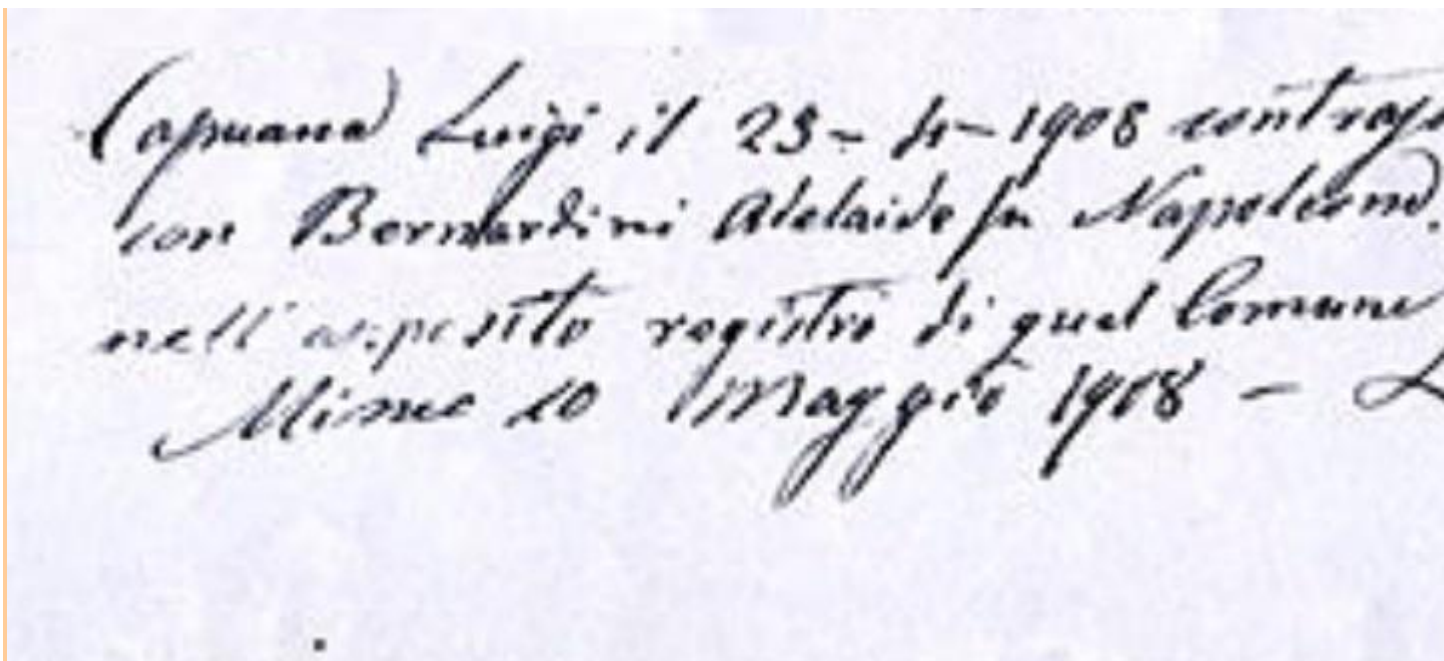 Capuana Luigi il 23-4-1908 contras
con Bernardini Adelaide fu Napoleone.
nell'apposito registro di quel Comune
Mineo 10 Maggio 1908 -